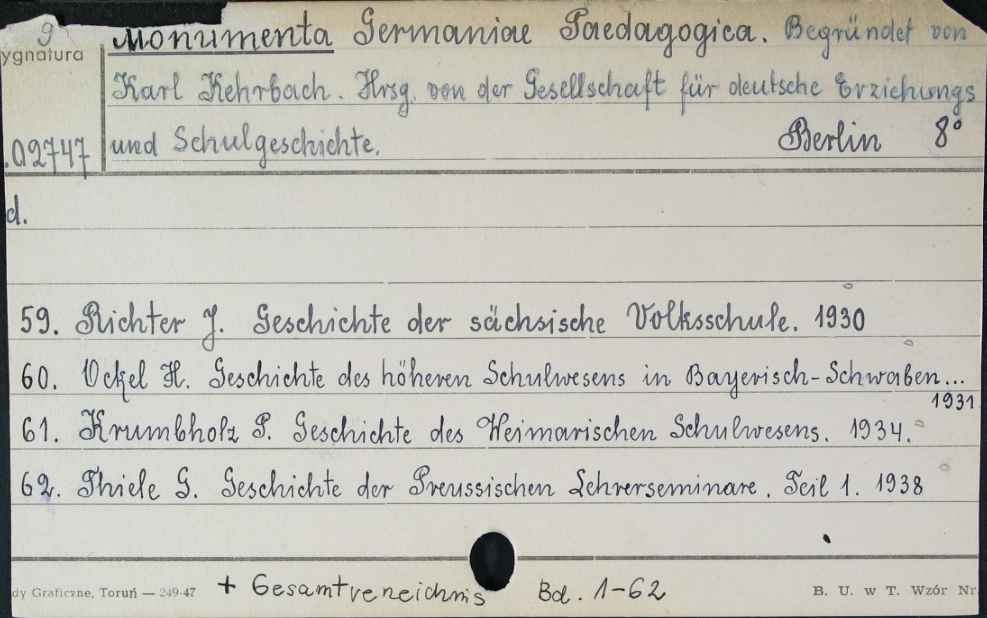 9
ygnatura
.02747
Monumenta Germaniae Paedagogica. Begründet von
Karl Kehrbach. Hrsg. von der Gesellschaft für deutsche Erziehungs
und Schulgeschichte. Berlin 8°
d.
59. Richter J. Geschichte der sächsische Volksschule. 1930
60. Ockel H. Geschichte des höheren Schulwesens in Bayerisch-Schwaben...
1931
61. Krumbholz P. Geschichte des Weimarischen Schulwesens. 1934.
62. Thiele G. Geschichte der Preussischen Lehrerseminare. Teil 1. 1938
dy Graficzne, Toruń — 249-47 + Gesamtverzeichnis Bd. 1-62 B. U. w T. Wzór Nr.